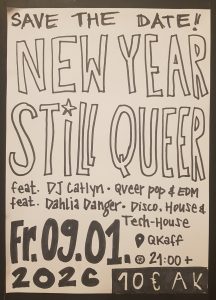 SAVE THE DATE!!
NEW YEAR
STiLL QUEER
feat. DJ Catlyn · Queer pop & EDM
feat. Dahlia Danger · Disco, House &
Tech-House
Fr. 09.01.
QKaff
2026
21:00+
10€ AK